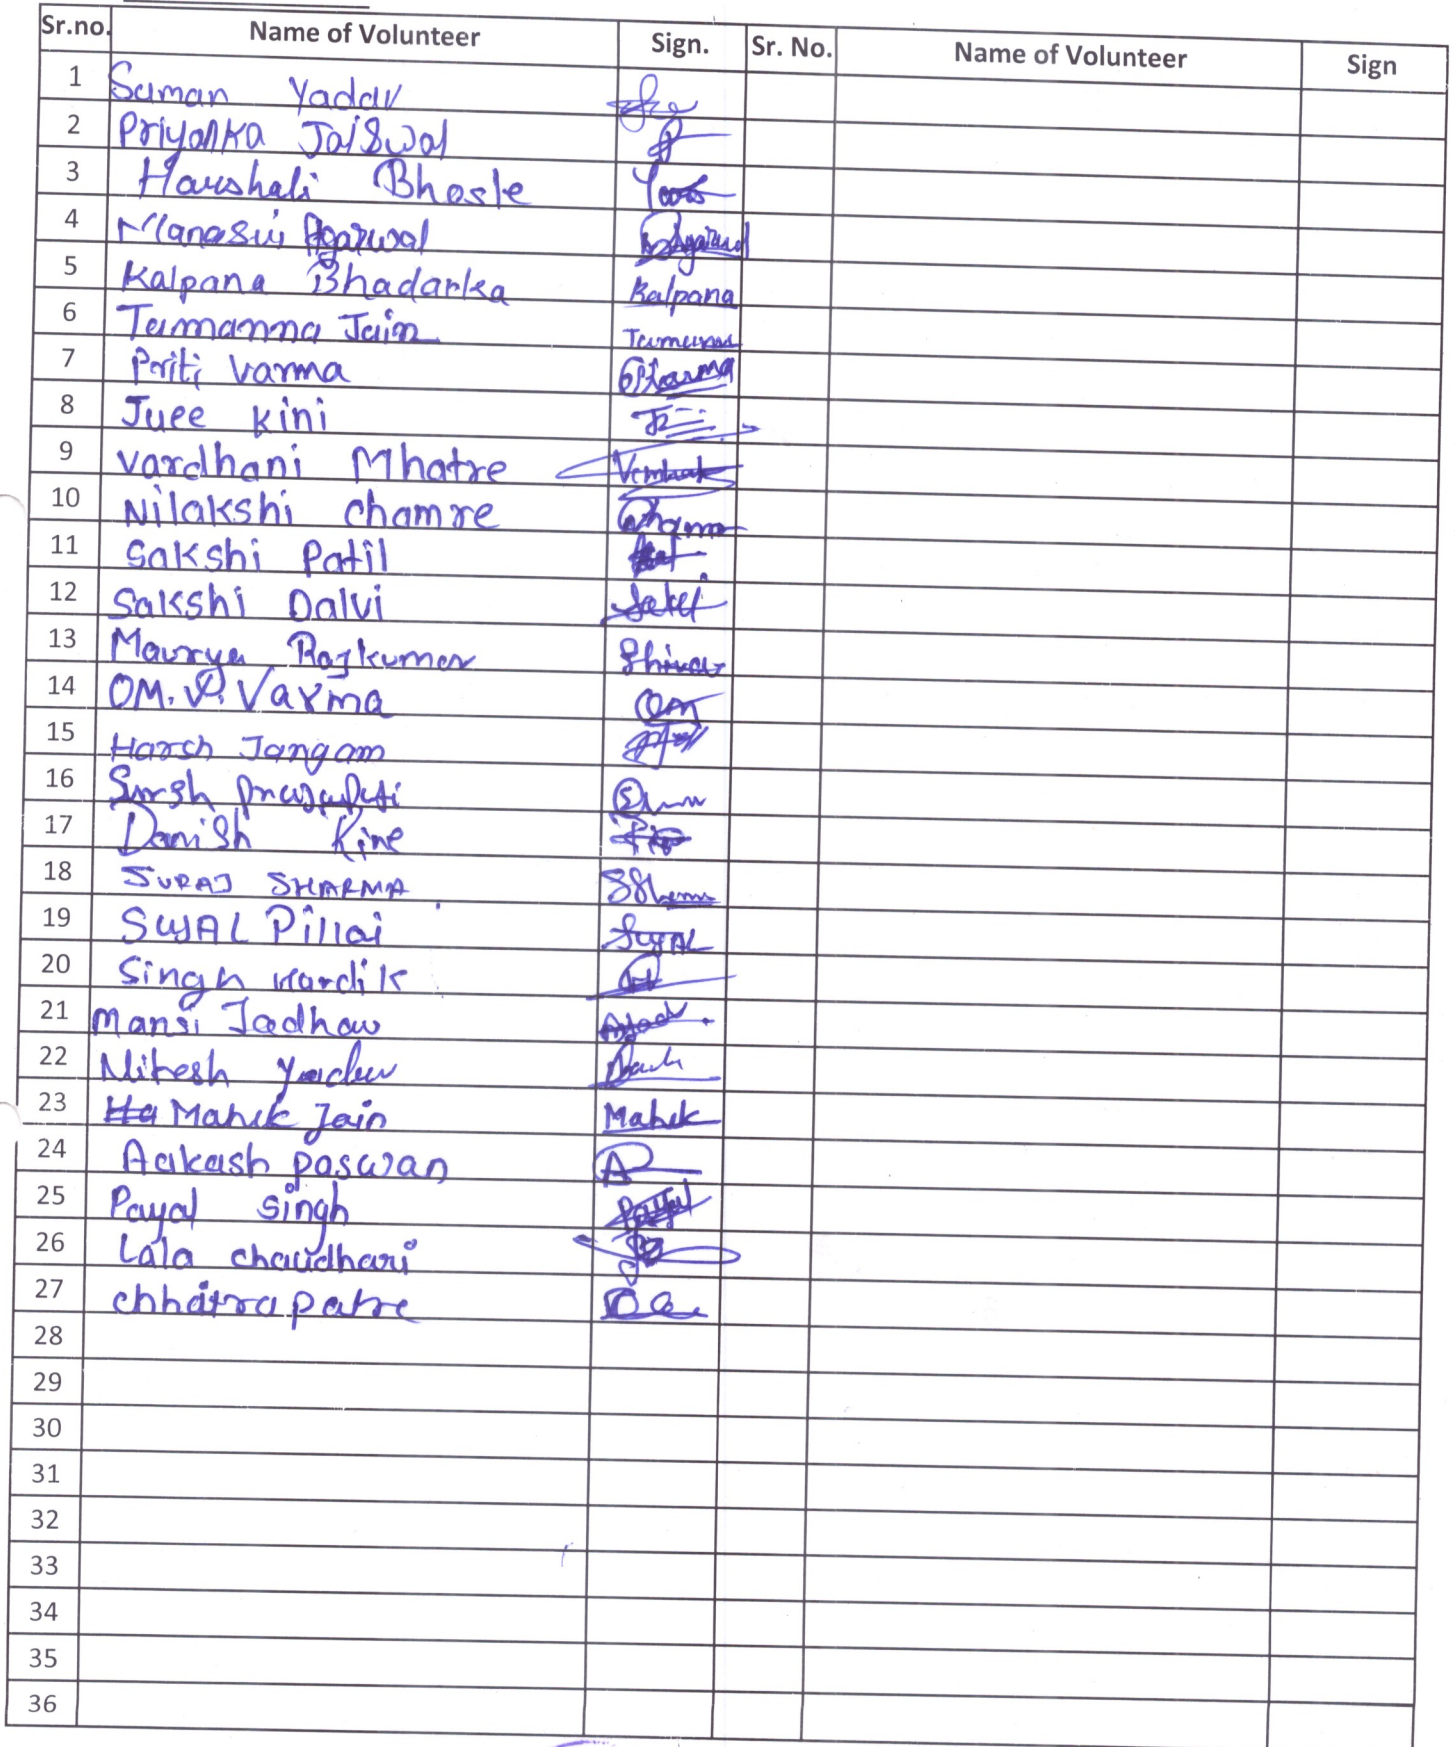 Sr.no. Name of Volunteer Sign. Sr. No. Name of Volunteer Sign
1 Suman Yadav
2 Priyanka Jaiswal
3 Harshali Bhosle
4 Manasvi Agarwal
5 Kalpana Bhadarka Kalpana
6 Tamanna Jain
7 Priti Varma
8 Juee Kini
9 Vardhani Mhatre
10 Nilakshi Chamre
11 Sakshi Patil
12 Sakshi Dalvi
13 Maurya Rajkumar
14 OM. P. Varma Om
15 Harsh Jangam
16 Prajapati
17 Danish Kine
18 SURAJ SHARMA
19 SUJAL Pillai SUJAL
20 Singh Hardik
21 Mansi Jadhav
22 Nitesh Yadav
23 Ha Mahek Jain Mahek
24 Aakash paswan A
25 Payal Singh Payal
26 Lala chaudhari
27 chhatrapatre
28
29
30
31
32
33
34
35
36